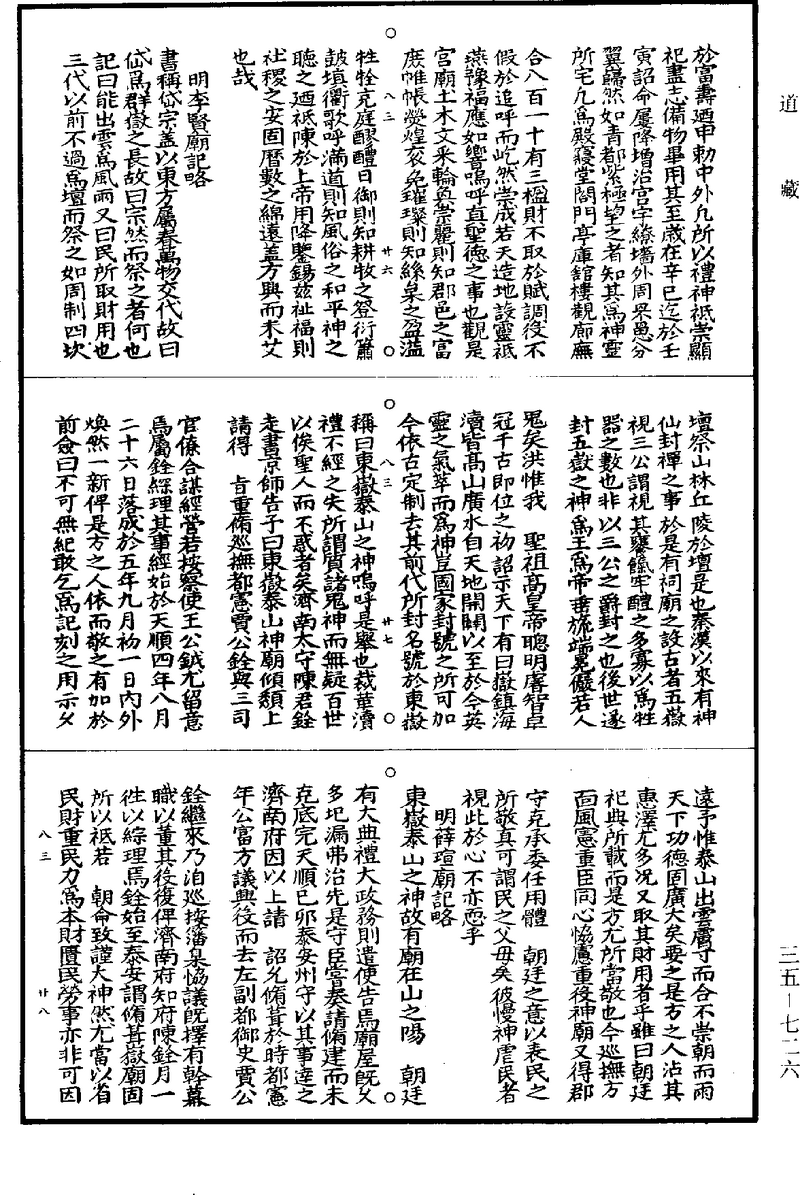 道藏
三五—七二六
於富壽廼申勅中外凡所以禮神祇崇顯
祀盡志備物畢用其至歲在辛巳迄於壬
寅詔命屢降增治宮宇繚墻外周罘罳分
翼巋然如青都紫極望之者知其為神靈
所宅凡為殿寢堂閤門亭庫舘樓觀廊廡
合八百一十有三楹財不取於賦調役不
假於追呼而屹然崇成若天造地設靈祇
燕豫福應如響嗚呼真聖德之事也觀是
宮廟土木文釆輪奐崇麗則知郡邑之富
庶帷帳熒煌衮冕璀璨則知絲枲之盈溢
牲牷充庭醪醴日御則知耕牧之登衍簫
鼓填衢歌呼滿道則知風俗之和平神之
聽之廼祗陳於上帝用降鑒錫茲祉福則
社稷之安固曆數之綿遠蓋方興而未艾
也哉
明李賢廟記略
書稱岱宗蓋以東方屬春萬物交代故曰
岱為群嶽之長故曰宗然而祭之者何也
記曰能出雲為風雨又曰民所取財用也
三代以前不過為壇而祭之如周制四坎
八三
廿六
壇祭山林丘陵於壇是也秦漢以來有神
仙封禪之事於是有祠廟之設古者五嶽
視三公謂視其饔餼牢醴之多寡以為牲
器之數也非以三公之爵封之也後世遂
封五嶽之神為王為帝垂旒端冕儼若人
鬼矣洪惟我　聖祖高皇帝聰明睿智卓
冠千古即位之初詔示天下有曰嶽鎮海
瀆皆高山廣水自天地開闢以至於今英
靈之氣萃而為神豈國家封號之所可加
今依古定制去其前代所封名號於東嶽
稱曰東嶽泰山之神嗚呼是舉也裁革瀆
禮不經之失所謂質諸鬼神而無疑百世
以俟聖人而不惑者矣濟南太守陳君銓
走書京師告予曰東嶽泰山神廟傾頹上
請得　旨重脩巡撫都憲賈公銓與三司
官僚合謀經營若按察使王公鉞尤留意
焉屬銓綜理其事經始於天順四年八月
二十六日落成於五年九月初一日內外
煥然一新俾是方之人依而敬之有加於
前僉曰不可無紀敢乞為記刻之用示久
八三
廿七
遠予惟泰山出雲膚寸而合不崇朝而雨
天下功德固廣大矣要之是方之人沾其
惠澤尤多況又取其財用者乎雖曰朝廷
祀典所載而是方尤所當敬也今巡撫方
面風憲重臣同心恊慮重後神廟又得郡
守克承委任用體　朝廷之意以表民之
所敬真可謂民之父母矣彼慢神虐民者
視此於心不亦恧乎
明薛瑄廟記略
東嶽泰山之神故有廟在山之陽　朝廷
有大典禮大政務則遣使告焉廟屋既久
多圯漏弗治先是守臣嘗奏請脩建而未
克底完天順己卯泰安州守以其事達之
濟南府因以上請　詔允脩葺於時都憲
年公富方議興役而去左副都御史賈公
銓繼來乃洎巡按藩臬恊議既擇有幹幕
職以董其役復俾濟南府知府陳銓月一
徃以綜理焉銓始至泰安謂脩葺嶽廟固
所以祗若　朝命致謹大神然尤當以省
民財重民力為本財匱民勞事亦非可因
八三
廿八